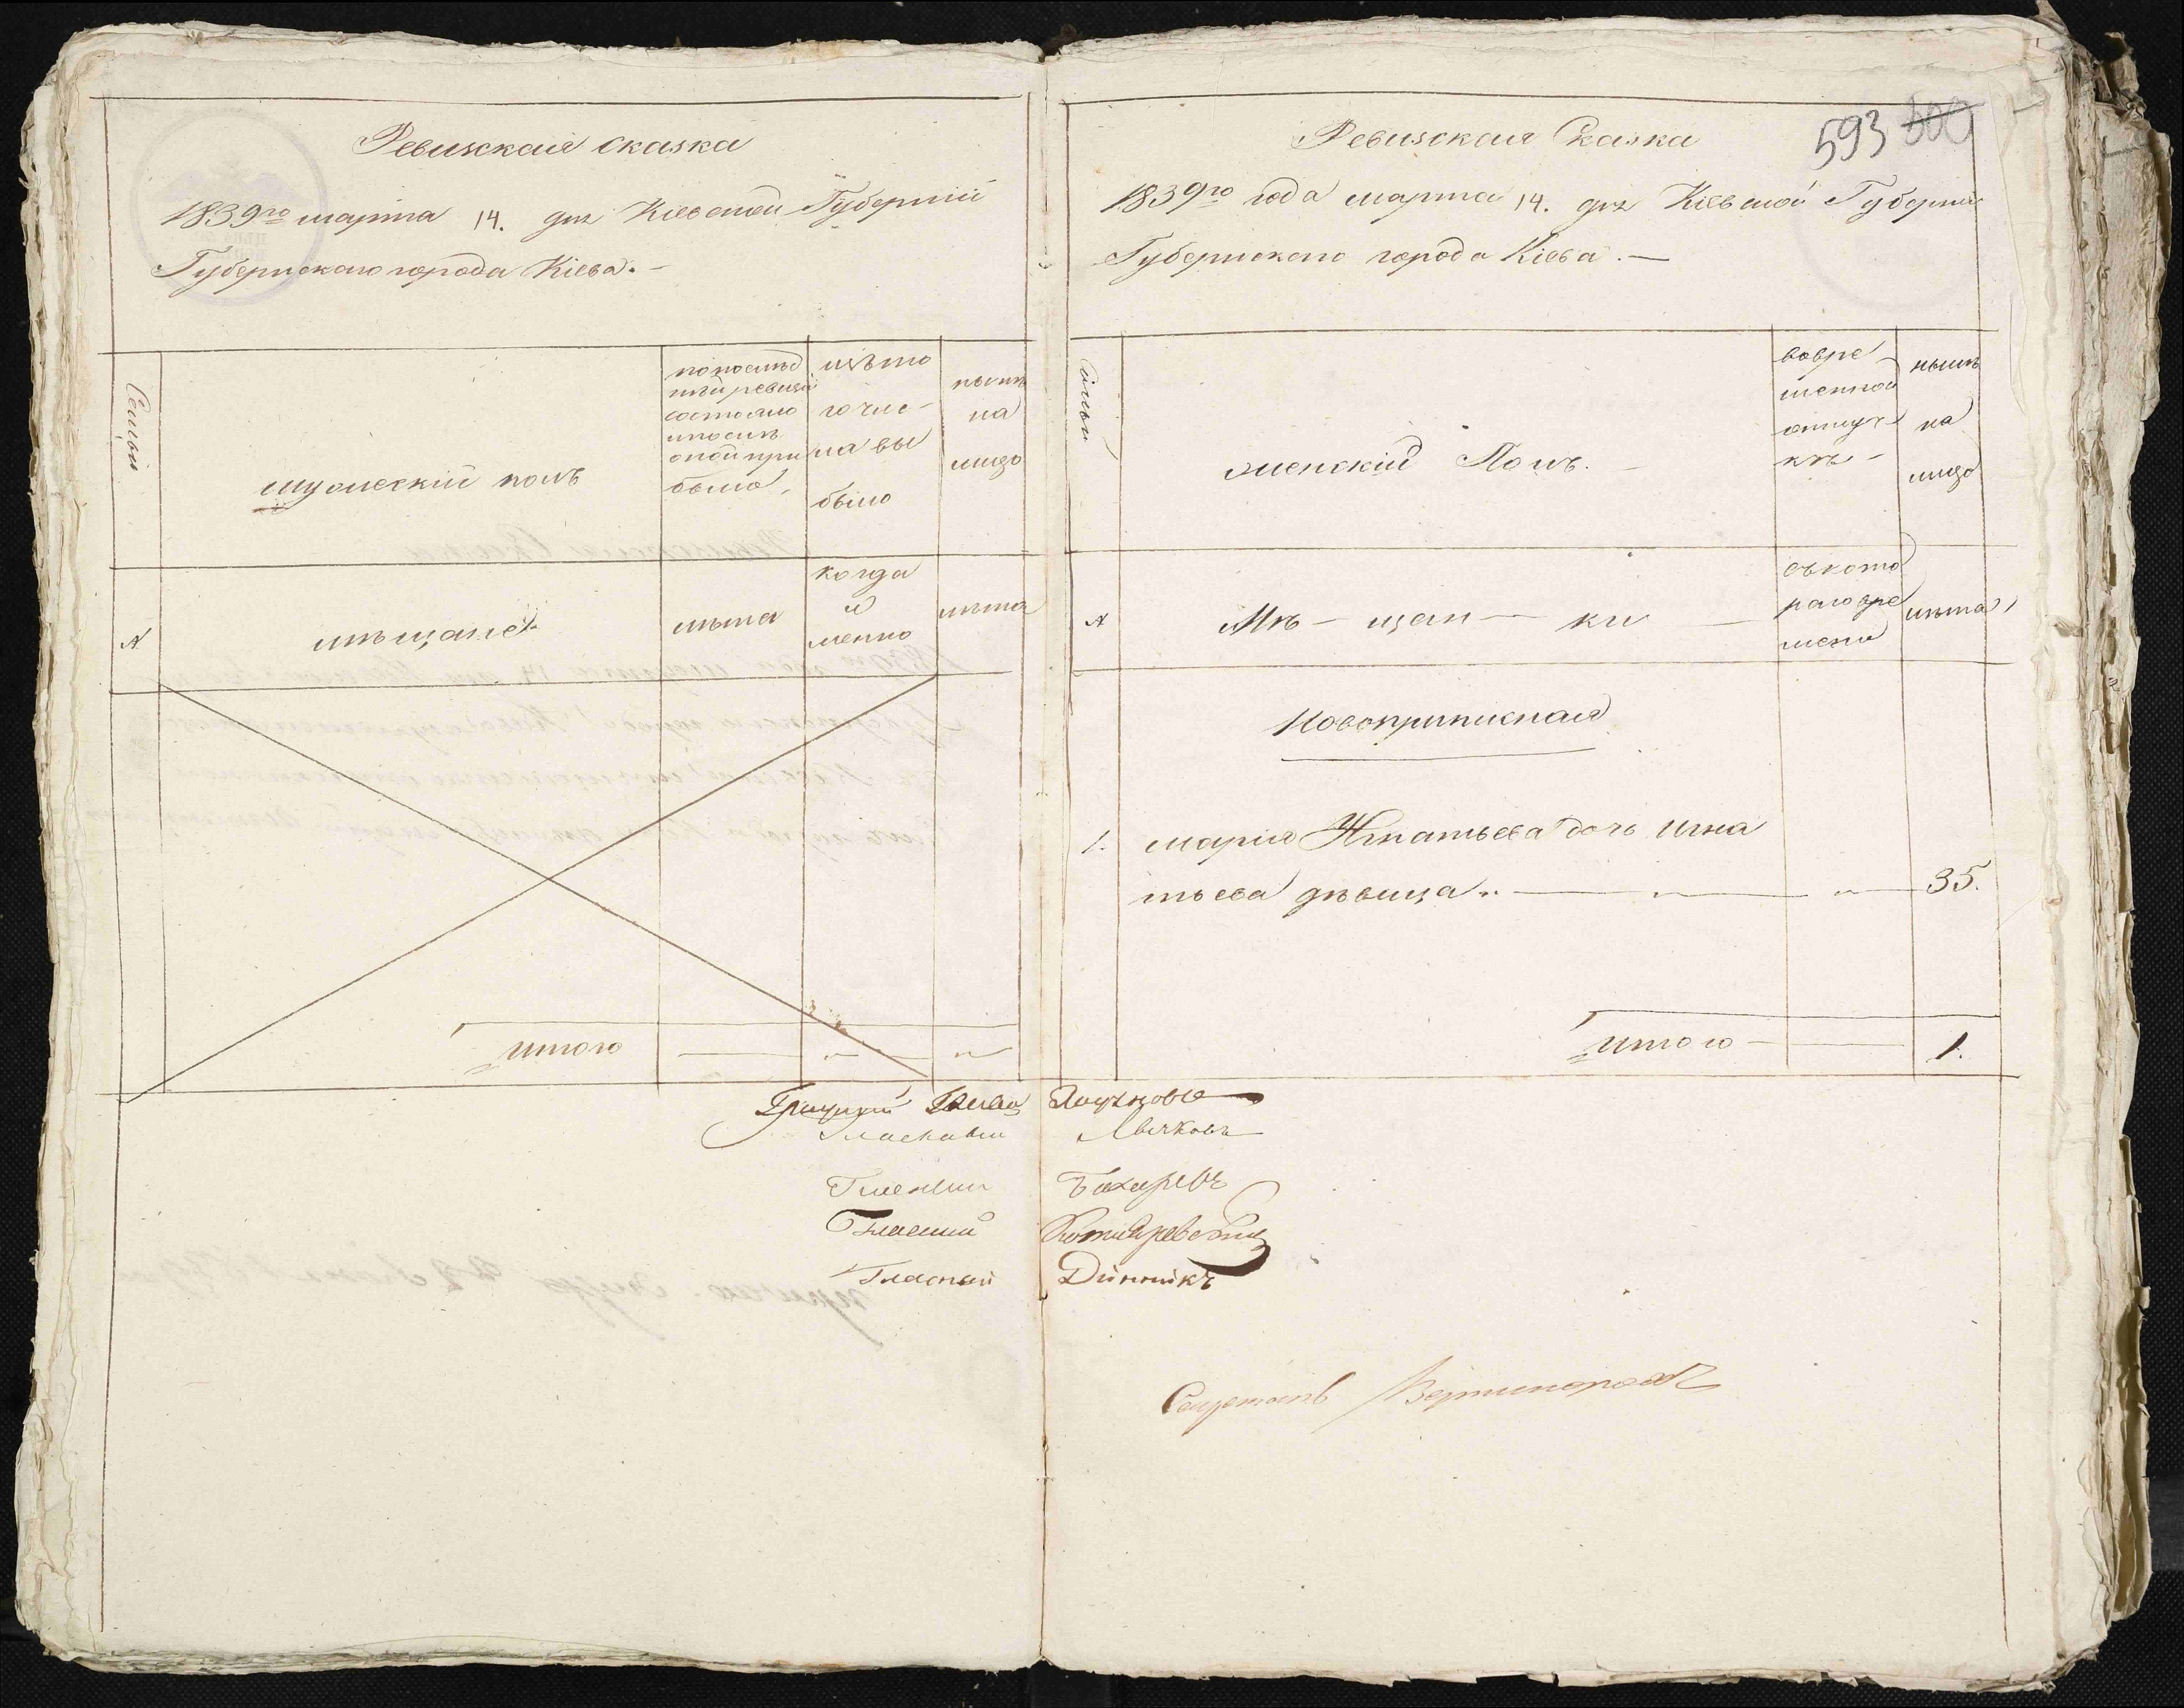 Ревизская сказка
1839го марта 14. дня Кіевской Губерніи
Губернскаго города Кіева.
Семьи
мужескій полъ
по послѣд
ней ревизіи
состояло
и послѣ
оной при
было
изъ то
го чис
ла вы
было
нынѣ
на
лицо
№
мѣщане
лѣта
когда
и
менно
лѣта
Итого
593
Ревизская Сказка
1839го года марта 14. дня Кіевской Губерніи
Губернскаго города Кіева. —
Семьи
женскій Полъ. —
вовре
менной
отлуч
кѣ —
нынѣ
на
лицо
№
Мѣ — щан — ки —
съ кото
раго вре
мени
лѣта
Новоприписная
1. Марія Игнатьева дочь Игна
тьева дѣвица. — 35.
Итого — 1.
Гласный
Гласный Бахаревъ
Гласный Котляревскій
Гласный Динникъ